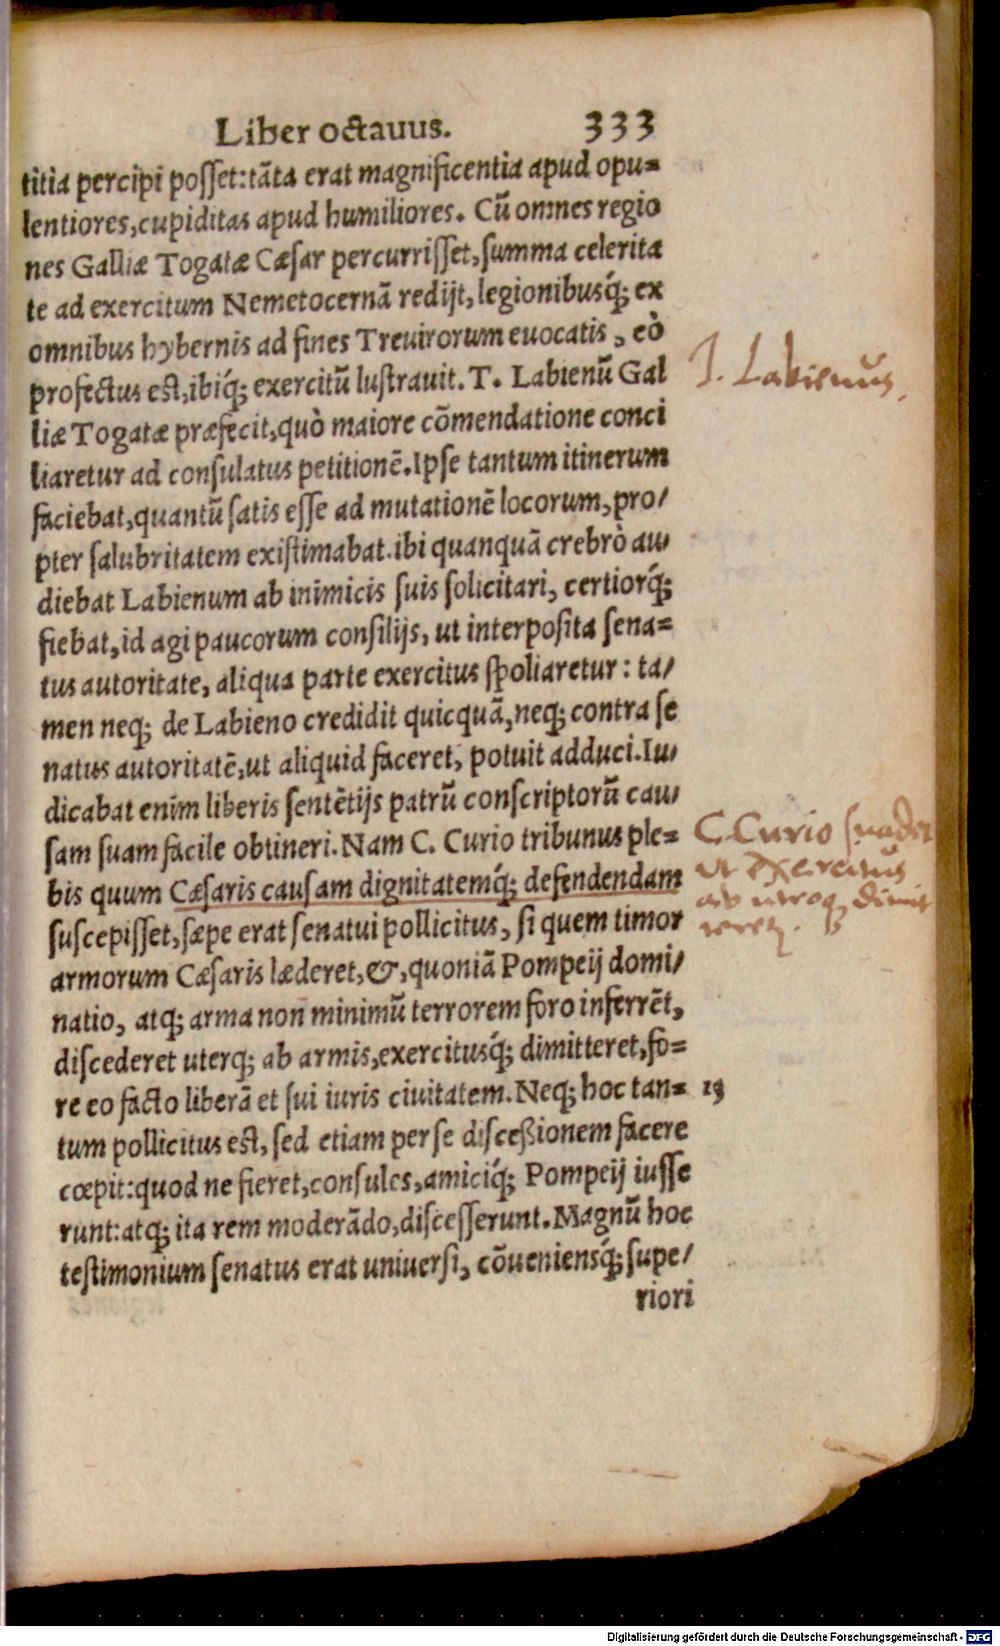 Liber octauus. 333
titia percipi posset:tāta erat magnificentia apud opu=
lentiores,cupiditas apud humiliores. Cū omnes regio
nes Galliæ Togatæ Cæsar percurrisset,summa celerita
te ad exercitum Nemetocernā redijt,legionibusq́; ex
omnibus hybernis ad fines Treuirorum euocatis, eò
profectus est,ibiq́; exercitū lustrauit. T. Labienū Gal
liæ Togatæ præfecit,quò maiore cōmendatione conci
liaretur ad consulatus petitionē.Ipse tantum itinerum
faciebat,quantū satis esse ad mutationē locorum,pro/
pter salubritatem existimabat.ibi quanquā crebrò au/
diebat Labienum ab inimicis suis solicitari, certiorq́;
fiebat,id agi paucorum consilijs, ut interposita sena=
tus autoritate, aliqua parte exercitus spoliaretur: ta/
men neq; de Labieno credidit quicquā,neq; contra se
natus autoritatē,ut aliquid faceret, potuit adduci.Iu/
dicabat enim liberis sentētijs patrū conscriptorū cau/
sam suam facile obtineri.Nam C. Curio tribunus ple=
bis quum Cæsaris causam dignitatemq́; defendendam
suscepisset,sæpe erat senatui pollicitus, si quem timor
armorum Cæsaris læderet,&,quoniā Pompeij domi/
natio, atq; arma non minimū terrorem foro inferrēt,
discederet uterq; ab armis,exercitusq́; dimitteret,fo=
re eo facto liberā et sui iuris ciuitatem.Neq; hoc tan=
tum pollicitus est, sed etiam per se disceßionem facere
cœpit:quod ne fieret,consules,amiciq́; Pompeij iusse
runt:atq; ita rem moderādo,discesserunt.Magnū hoc
testimonium senatus erat uniuersi, cōueniensq́; supe/
riori
T. Labienus.
C. Curio suadet
ut exercitus
ab utroq;
Digitalisierung gefördert durch die Deutsche Forschungsgemeinschaft - DFG